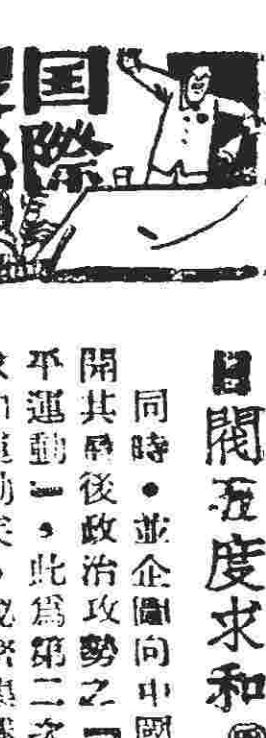 国際
日閥五度求和
同時●並企圖向中國
開其最後政治攻勢之「
平運動」，此爲第二次